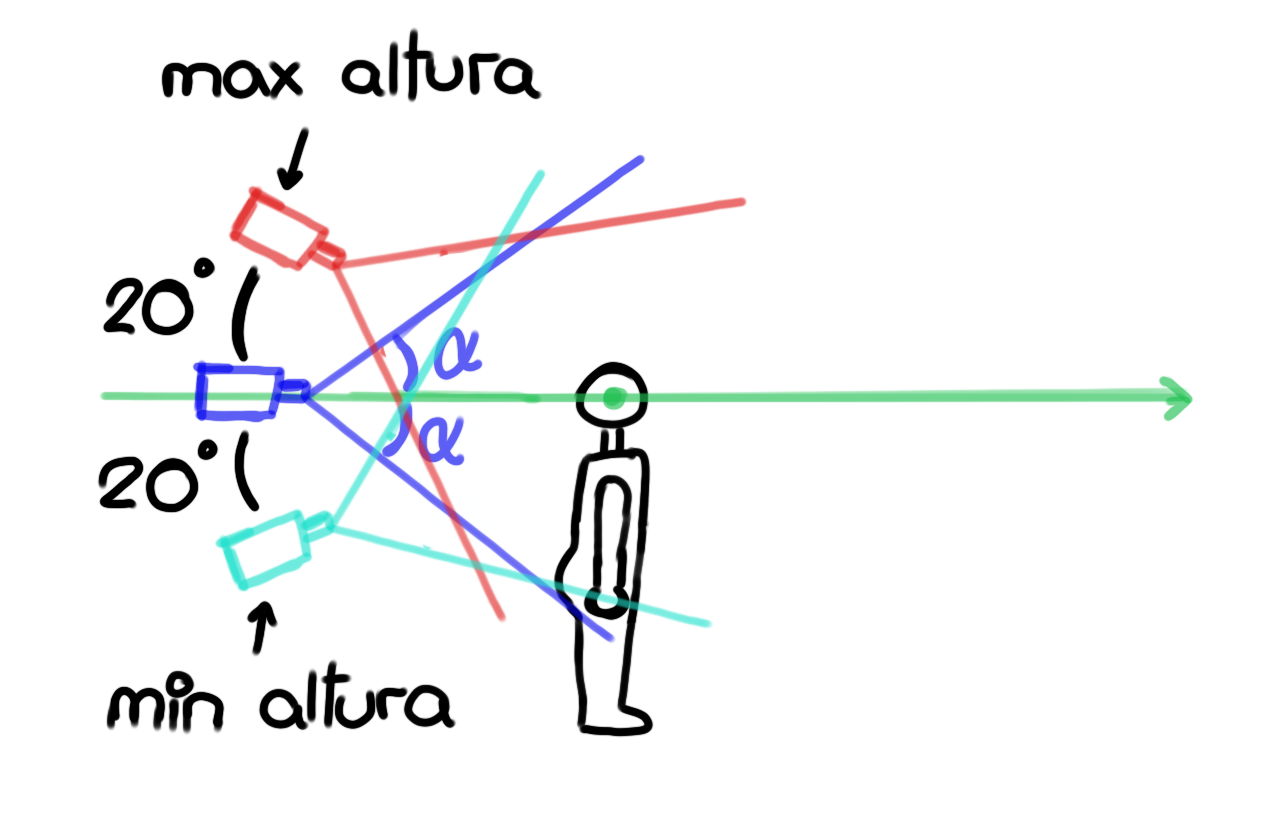 max altura
20°
α
α
20°
min altura